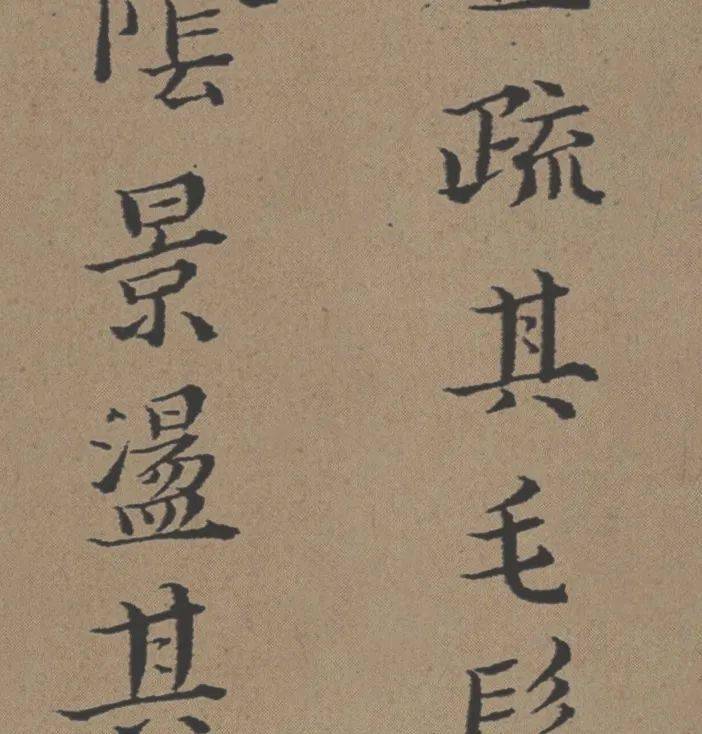 疏其毛
景盪其